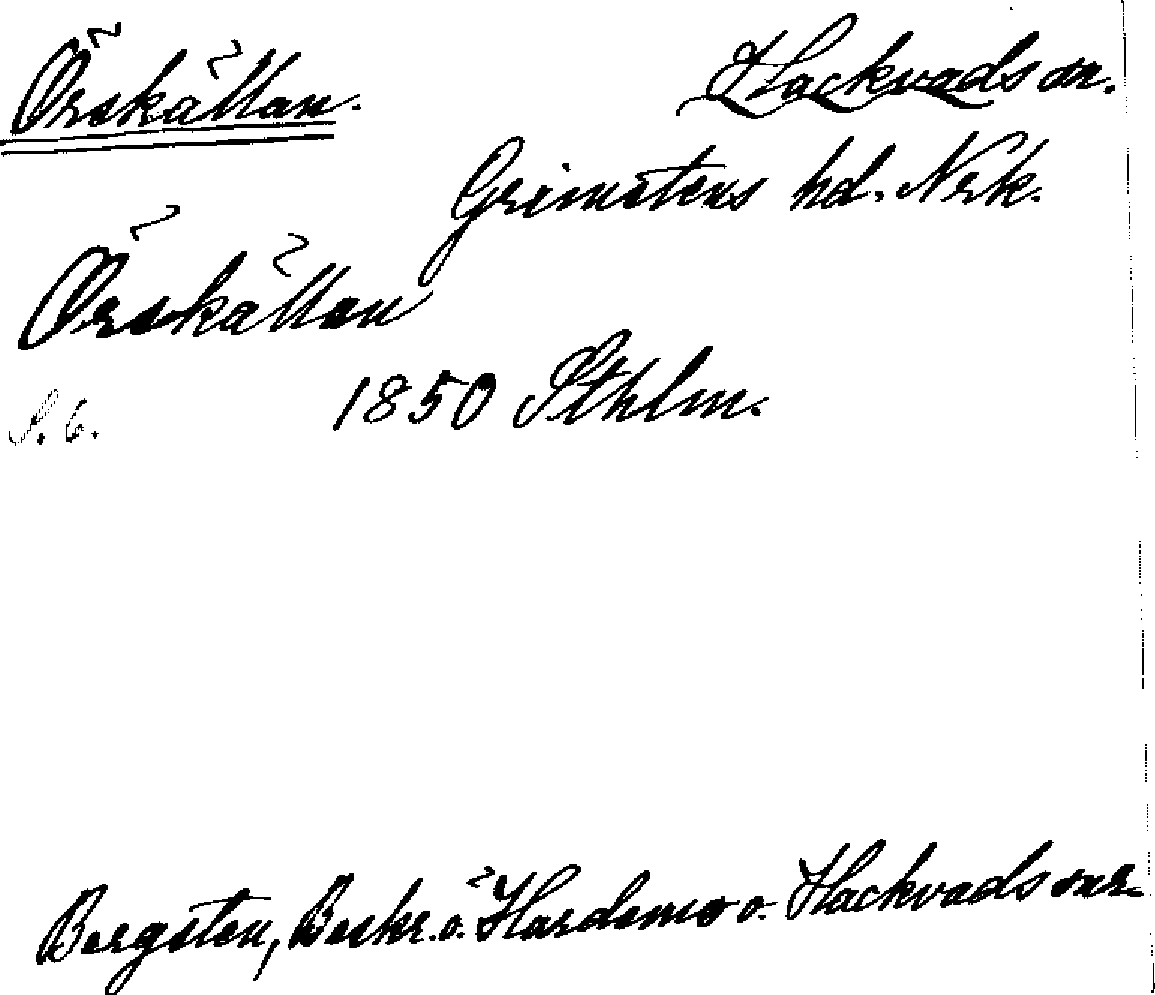 Örskällan. Hackvads sn.
Grimstens hd. Nrk.
Örskällan
S. 6. 1850 Sthlm.
Bergsten, Beskr. ö. Hardemo o. Hackvads snr